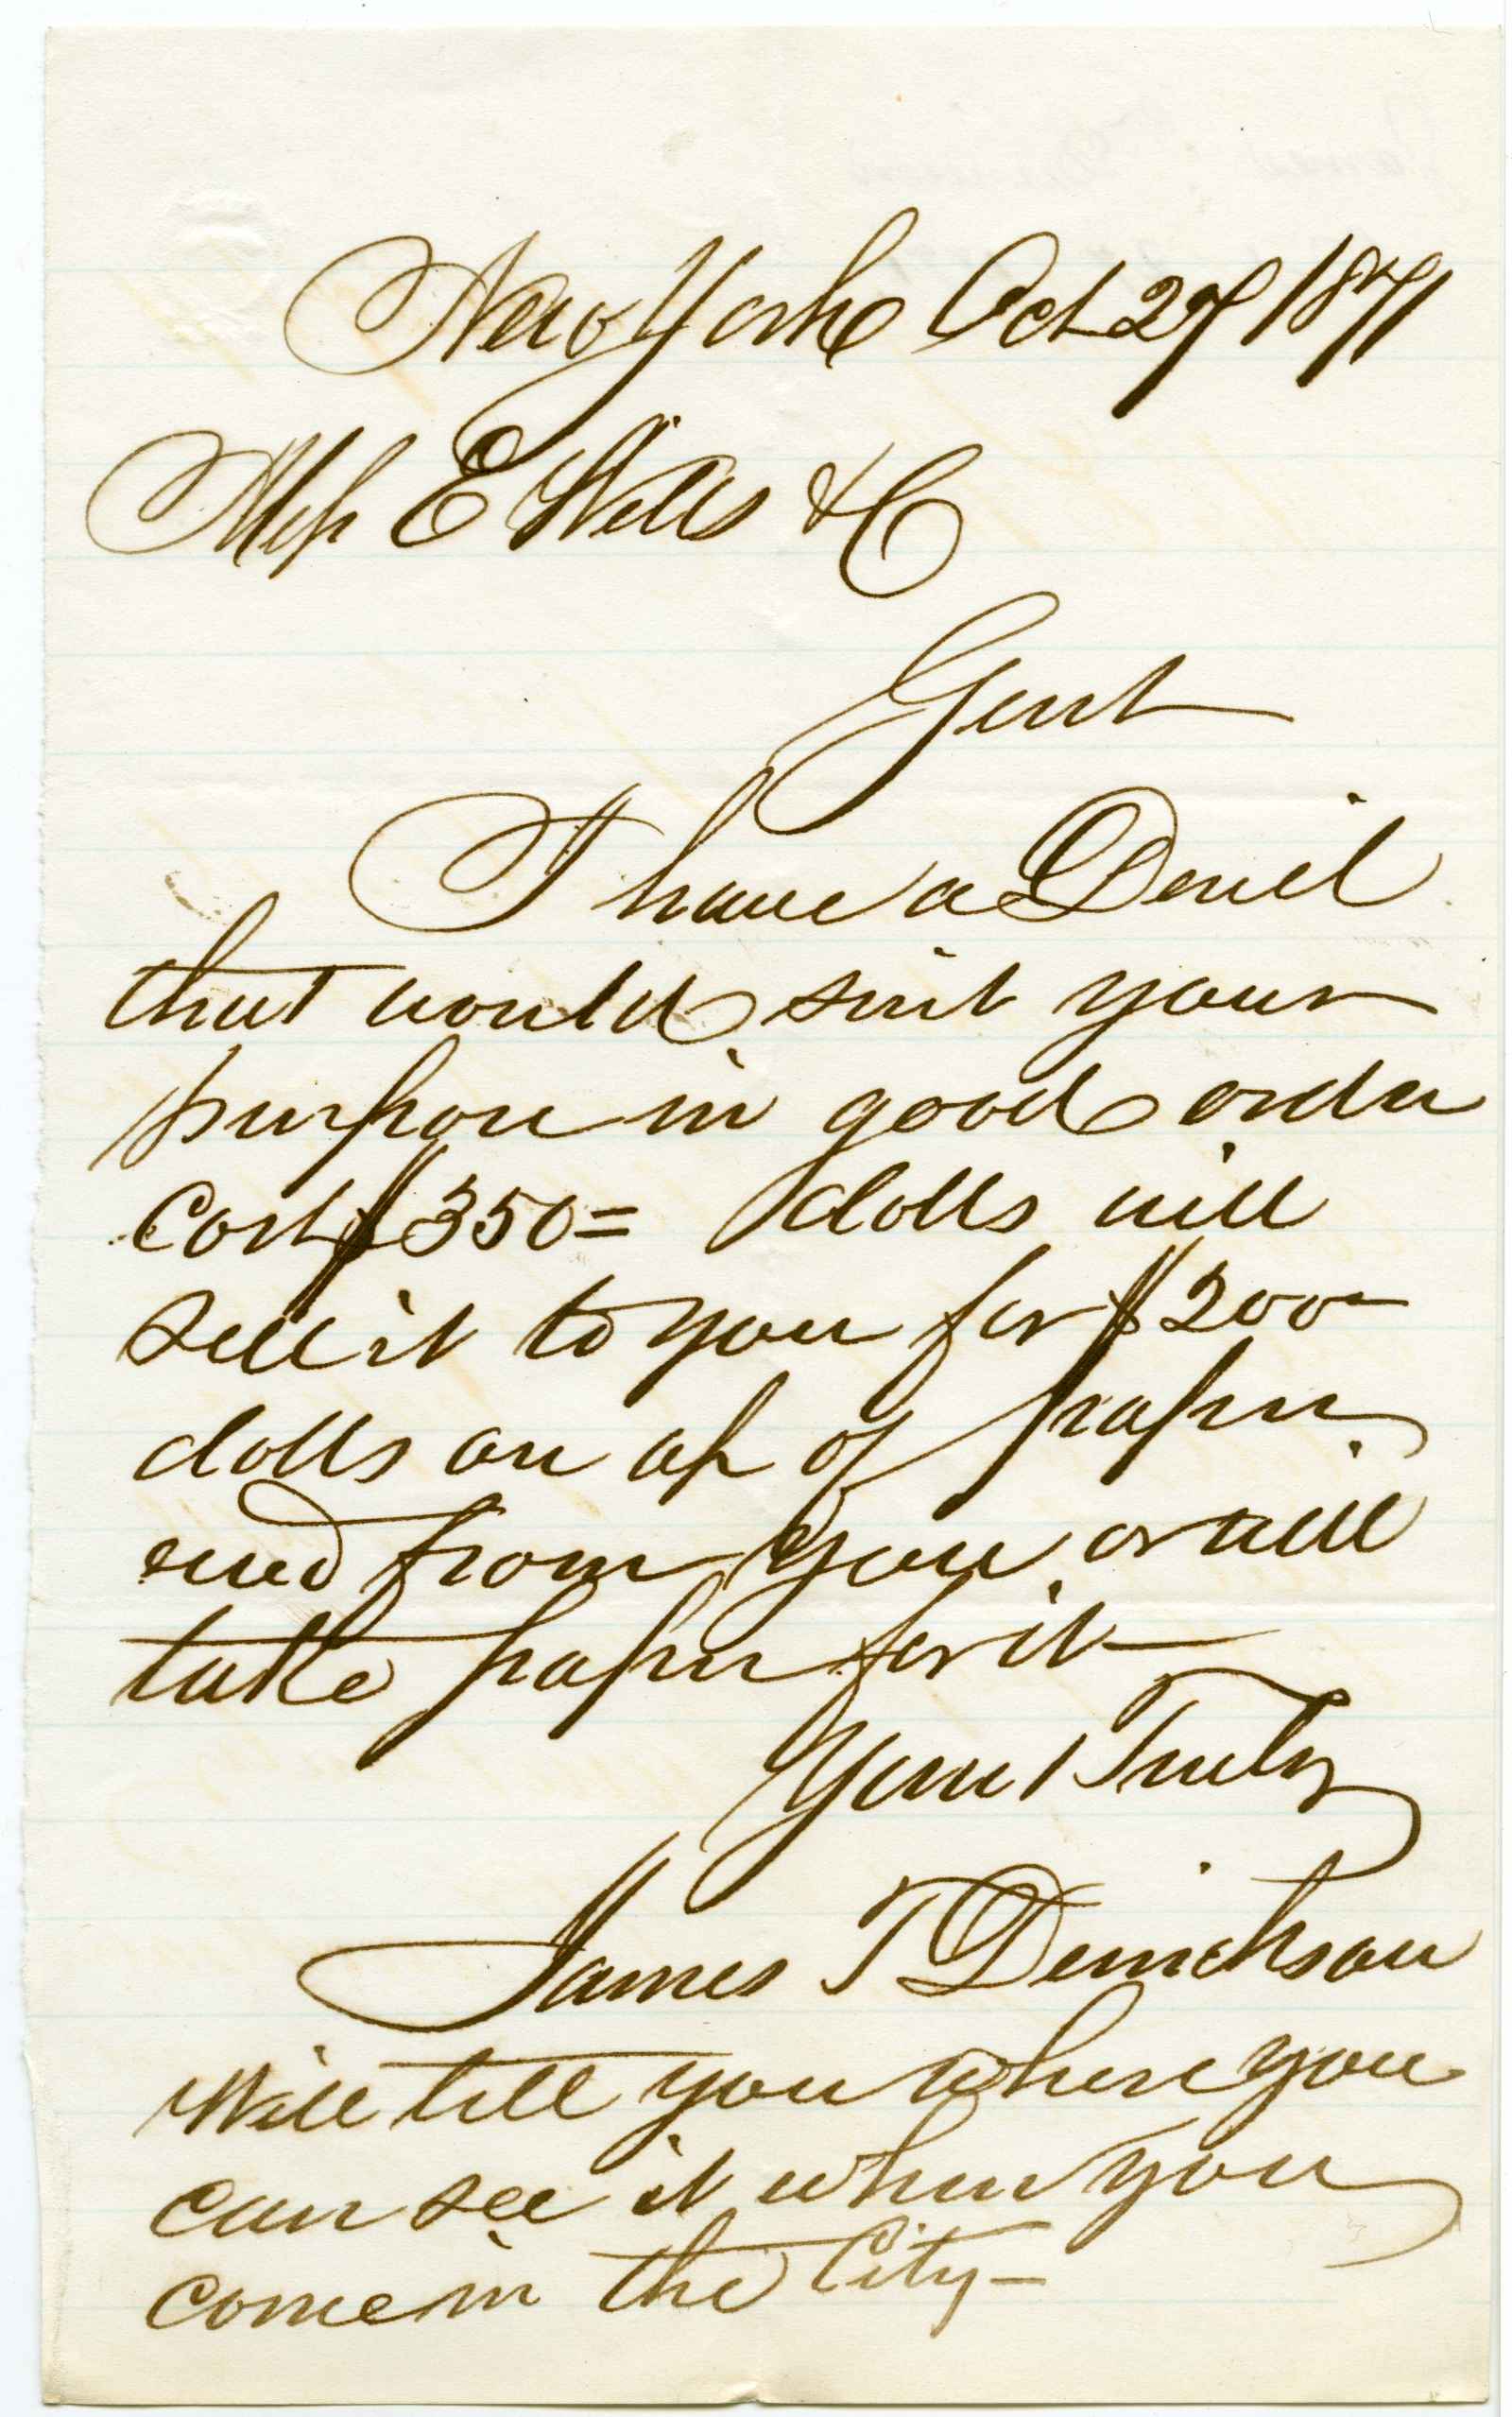 New York Oct 27 1871
Mess E Wells & C
Gent
I have a Devil
that would suit your
purpose in good order
Cost $350= dolls will
sell it to you for $200-
dolls on a/c of paper
recd from you or will
take paper for it
Yours Truly
James T Derrickson
Will tell you where you
can see it when you
come in the City-